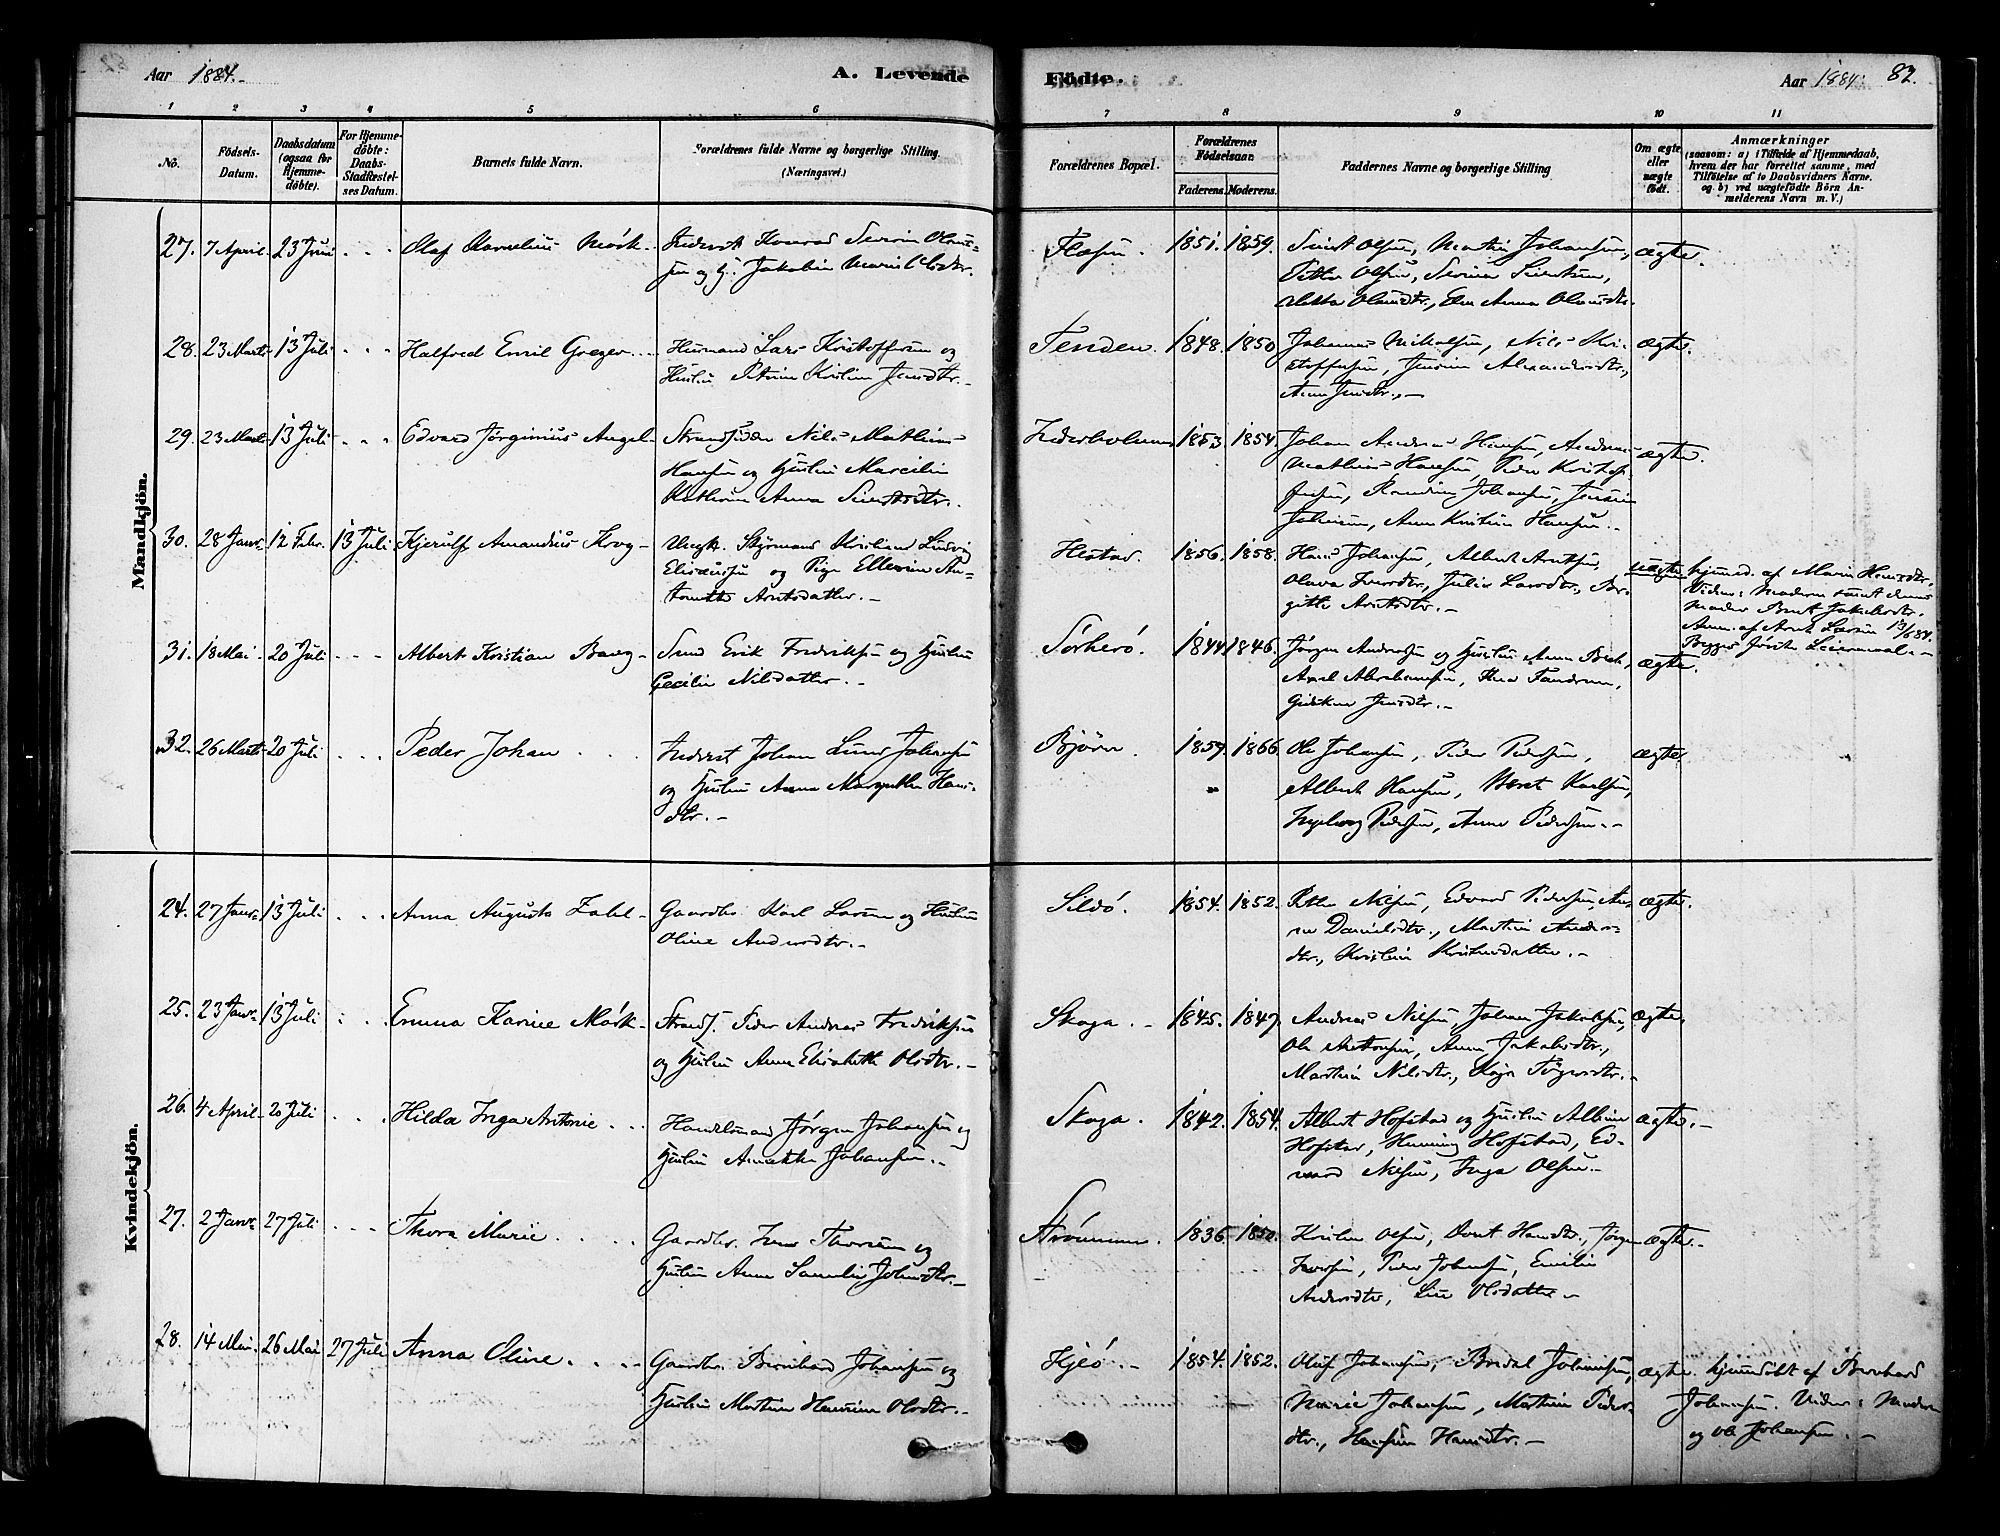 Aar 1884.
A. Levende
Födte.
Aar 1884.
82.
1 2 3 4 5 6
7 8 9 10 11
Nö.
Födsels-
Datum.
Daabsdatum
(ogsaa for
Hjemme-
döbte).
For Hjemme-
döbte:
Daabs-
Stadfæstel-
ses Datum.
Barnets fulde Navn.
Forældrenes fulde Navne og borgerlige Stilling
(Næringsvei.)
Forældrenes Bopæl.
Forældrenes
Födselsaar.
Faderens. Moderens.
Faddernes Navne og borgerlige Stilling
Om ægte
eller
uægte
födt.
Anmærkninger
(saasom: a) i Tilfælde af Hjemmedaab,
hvem der har forrettet samme, med
Tilföielse af to Daabsvidners Navne.
og b) ved uægtefödte Börn An-
melderens Navn m. V.)
Mandkjön.
27. 7 April 23 Juni Olaf Kornelius Mörk
Inderst Konrad Severin Olaus-
sen og H. Jakobin Marie Olsdtr.
Flæsen. 1851. 1859.
Sivert Olsen, Martin Johansen,
Petter Olsen, Serina Sivertsen,
Olausdtr., Anna Olausdtr.
ægte.
28. 23 Marts 13 Juli Halfred Emil Greger
Husmand Lars Kristoffersen og
Hustru Petrine Kristine Jensdtr.
Tenden. 1848. 1850
Johannes Mikalsen, Nils Kri-
stoffersen, Jensine Alexandersdtr.,
Anne Jensdtr.
ægte.
29. 23 Marts 13 Juli Edvard Jörginius Angel
Strandsidder Nils Mathias
Hansen og Hustru Marcilie
Kathrine Anna Sivertsdtr.
1853. 1854.
Johan Andreas Hansen, Andreas
Mathias Hansen, Peder Kristof-
fersen, Johansen, Jensine
Johnsen, Anne Kristine Hansen.
ægte.
30. 28 Janr 12 Febr. 13 Juli Kjerulf Amandius Krog
Ungk. Styrmand Kristian Ludvig
Elisæussen og Pige Ellevine An-
tonette Arntsdatter.
Hestad. 1856. 1858.
Hans Johansen, Albert Arntsen,
Olava Iversdtr., Julie Larsdtr., Bir-
gitte Arntsdtr.
uægte
hjemmed. af Marie Hansdtr.
Vidner: Moderen samt dennes
Moder Berit Jakobsdtr.
Anm. af Arnt Larsen 13/6 84.
Begges förste Leiermaal.
31. 18 Mai 20 Juli Albert Kristian Bang
Smed Erik Fredriksen og Hustru
Cecilie Nilsdatter.
Sörherö. 1844 1846.
Jörgen Andersen og Hustru Anna Beck,
Axel Abrahamsen, Thea Tandrem,
Gidsken Jensdtr.
ægte.
32. 26 Marts 20 Juli Peder Johan
Inderst Johan Lund Johansen
og Hustru Anna Margrethe Hans-
dtr.
Bjørn. 1859. 1866
Ole Johansen, Peder Pedersen,
Albert Hansen, Beret Karlsen,
Ingeborg Pedersen, Anne Pedersen.
ægte
Kvindekjön.
24. 27 Janr 13 Juli Anna Augusta Zahl
Gaardbr. Karl Larsen og Hustru
Oline Andersdtr.
Sildö. 1854. 1852.
Petter Nilsen, Edvard Pedersen, An-
ne Danielsdtr., Martine Anders-
dtr., Kristine Kristensdatter.
ægte.
25. 23 Janr 13 Juli Emma Karine Mörk
Strands. Peder Andreas Fredriksen
og Hustru Anne Elisabeth Olsdtr.
Skoga. 1845. 1847.
Andreas Nilsen, Johan Jakobsen,
Ole Antonsen, Anne Jakobsdtr.,
Martine Nilsdtr., Kaja
ægte.
26. 4 April 20 Juli Hilda Inga Antonie
Handelsmand Jörgen Johansen og
Hustru Anette Johansen.
Skoga. 1842. 1854.
Albert Hofstad og Hustru Albine
Hofstad, Henning Hofstad, Ed-
vard Nilsen, Inga Olsen.
ægte.
27. 2 Janr 27 Juli Thora Marie
Gaardbr. Iver Thorsen og
Hustru Anne Samuline Johnsdtr.
Strömmen. 1836 1850.
Kristen Olsen, Berit Hansdtr., Jörgen
Iversen, Peder Johansen, Emilie
Andersdtr, Line Olsdatter
ægte.
28. 14 Mai 26 Mai 27 Juli Anna Oline
Gaardbr. Bernhard Johansen og
Hustru Martine Hansine Olsdtr.
Hjeö. 1854. 1852.
Oluf Johansen, Johansen,
Marie Johansen, Martine Peders-
dtr., Hansine Hansdtr.
ægte.
hjemmedöbt af Bernhard
Johansen. Vidner: Moderen
og Ole Johansen.